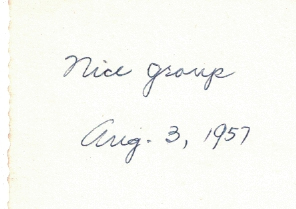 Nice group
Aug. 3, 1957